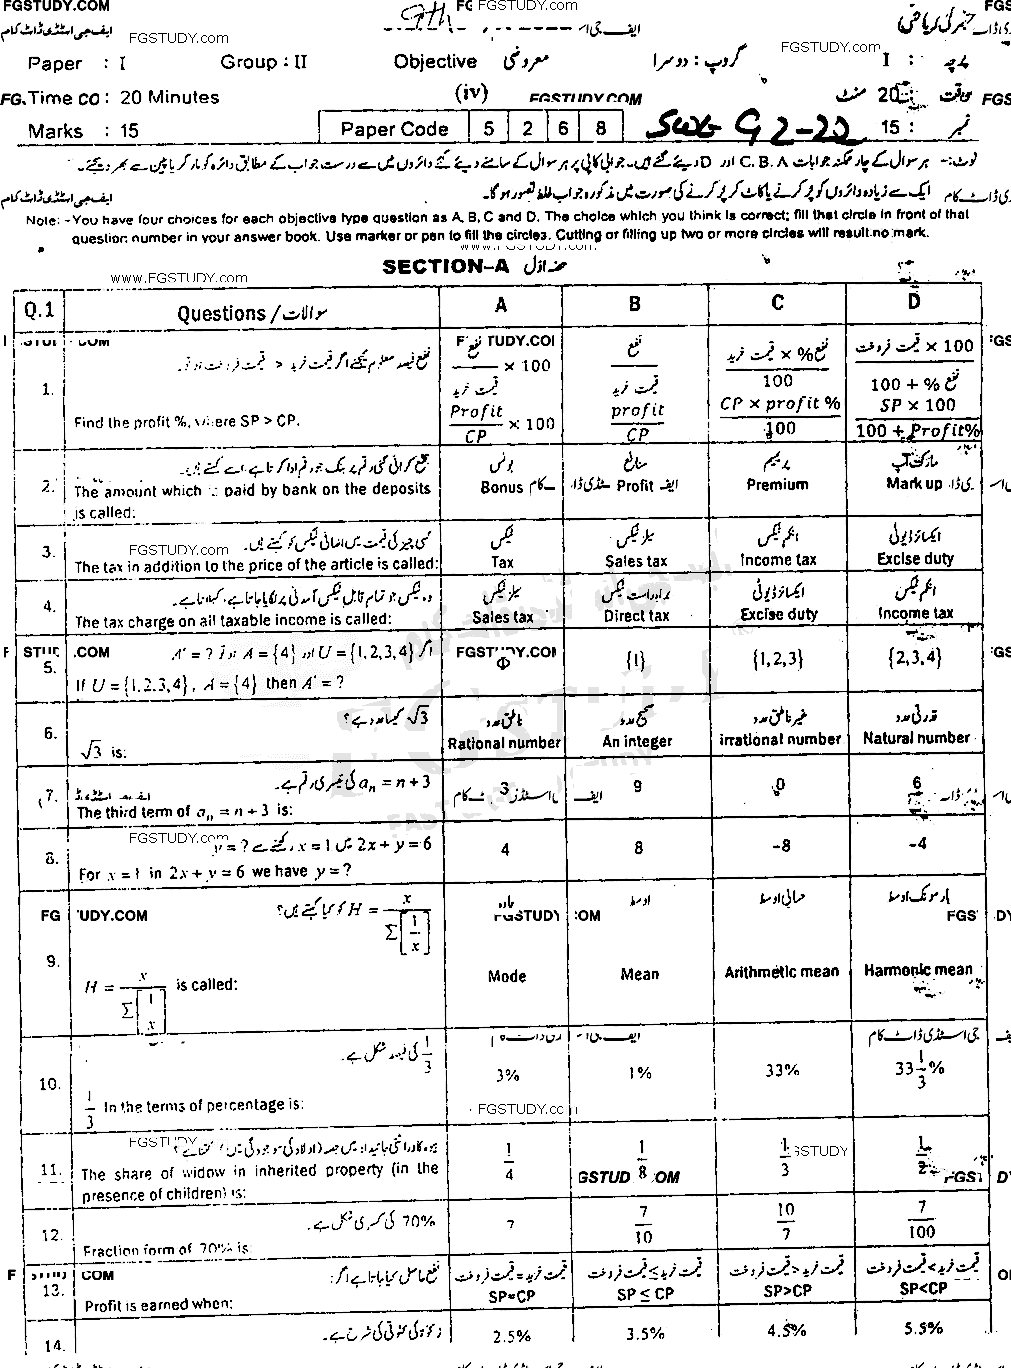 FGSTUDY.COM FG FGSTUDY.com FGS
9th
ایف جی اسٹڈی ڈاٹ کام FGSTUDY.com جنرل ریاضی
FGSTUDY.com
Paper : I Group : II Objective معروضی گروپ : دوسرا پرچہ : I
FG. Time : 20 Minutes (iv) FGSTUDY.COM وقت : 20 منٹ FGS
Marks : 15 Paper Code 5 2 6 8 SWL-G2-22 نمبر : 15
نوٹ:- ہر سوال کے چار ممکنہ جوابات C، B، A اور D دیئے گئے ہیں۔ جوابی کاپی پر ہر سوال کے سامنے دیئے گئے دائروں میں سے درست جواب کے مطابق دائرہ کو مارکر یا پین سے بھر دیجئے۔
ایف جی اسٹڈی ڈاٹ کام ایک سے زیادہ دائروں کو پُر کرنے یا کاٹ کر پُر کرنے کی صورت میں مذکورہ جواب غلط تصور ہو گا۔
Note: -You have four choices for each objective type question as A, B, C and D. The choice which you think is correct; fill that circle in front of that
question number in your answer book. Use marker or pen to fill the circles. Cutting or filling up two or more circles will result no mark.
www.FGSTUDY.com SECTION-A حصہ اوّل
Q.1 Questions / سوالات A B C D
1. نفع فیصد معلوم کیجئے اگر قیمت خرید < قیمت فروخت ہو تو۔
نفع / قیمت خرید × 100 نفع / قیمت خرید نفع% × قیمت خرید / 100 100 × قیمت فروخت / 100 + % نفع
Find the profit %, where SP > CP. Profit / CP × 100 profit / CP CP × profit % / 100 SP × 100 / 100 + Profit%
2. جمع کرائی گئی رقم پر بنک جو رقم ادا کرتا ہے اسے کہتے ہیں۔ بونس منافع پریمیم مارک اپ
The amount which is paid by bank on the deposits is called: Bonus Profit Premium Mark up
3. کسی چیز کی قیمت میں اضافی ٹیکس کو کہتے ہیں۔ ٹیکس سیلز ٹیکس انکم ٹیکس ایکسائز ڈیوٹی
FGSTUDY.com
The tax in addition to the price of the article is called: Tax Sales tax Income tax Excise duty
4. وہ ٹیکس جو تمام قابل ٹیکس آمدنی پر لگایا جاتا ہے، کہلاتا ہے۔ سیلز ٹیکس براہ راست ٹیکس ایکسائز ڈیوٹی انکم ٹیکس
The tax charge on all taxable income is called: Sales tax Direct tax Excise duty Income tax
5. اگر U = {1,2,3,4} اور A = {4} ہو تو A' = ?
If U = {1,2,3,4}, A = {4} then A' = ? Φ {1} {1,2,3} {2,3,4}
6. √3 کیسا عدد ہے؟ ناطق عدد صحیح عدد غیر ناطق عدد قدرتی عدد
√3 is: Rational number An integer irrational number Natural number
7. aₙ = n + 3 کی تیسری رقم ہے۔ 3 9 0 6
The third term of aₙ = n + 3 is:
8. 2x + y = 6 میں x = 1 رکھنے سے y = ? 4 8 -8 -4
FGSTUDY.com
For x = 1 in 2x + y = 6 we have y = ?
9. H = x / Σ[1/x] کو کیا کہتے ہیں؟ عادہ اوسط حسابی اوسط ہارمونک اوسط
H = x / Σ[1/x] is called: Mode Mean Arithmetic mean Harmonic mean
10. 1/3 کی فیصد شکل ہے۔ 3% 1% 33% 33 1/3 %
1/3 In the terms of percentage is:
FGSTUDY.com
11. بیوہ کا وراثتی جائیداد میں حصہ (اولاد کی موجودگی میں) کتنا ہے؟ 1/4 1/8 1/3 1/2
The share of widow in inherited property (in the presence of children) is:
12. 70% کی کسری شکل ہے۔ 7 7/10 10/7 7/100
Fraction form of 70% is
13. نفع حاصل کیا جاتا ہے اگر: قیمت خرید = قیمت فروخت قیمت خرید ≥ قیمت فروخت قیمت خرید < قیمت فروخت قیمت خرید > قیمت فروخت
Profit is earned when: SP=CP SP ≤ CP SP>CP SP<CP
14. زکوٰۃ کی کٹوتی کی شرح ہے۔ 2.5% 3.5% 4.5% 5.5%